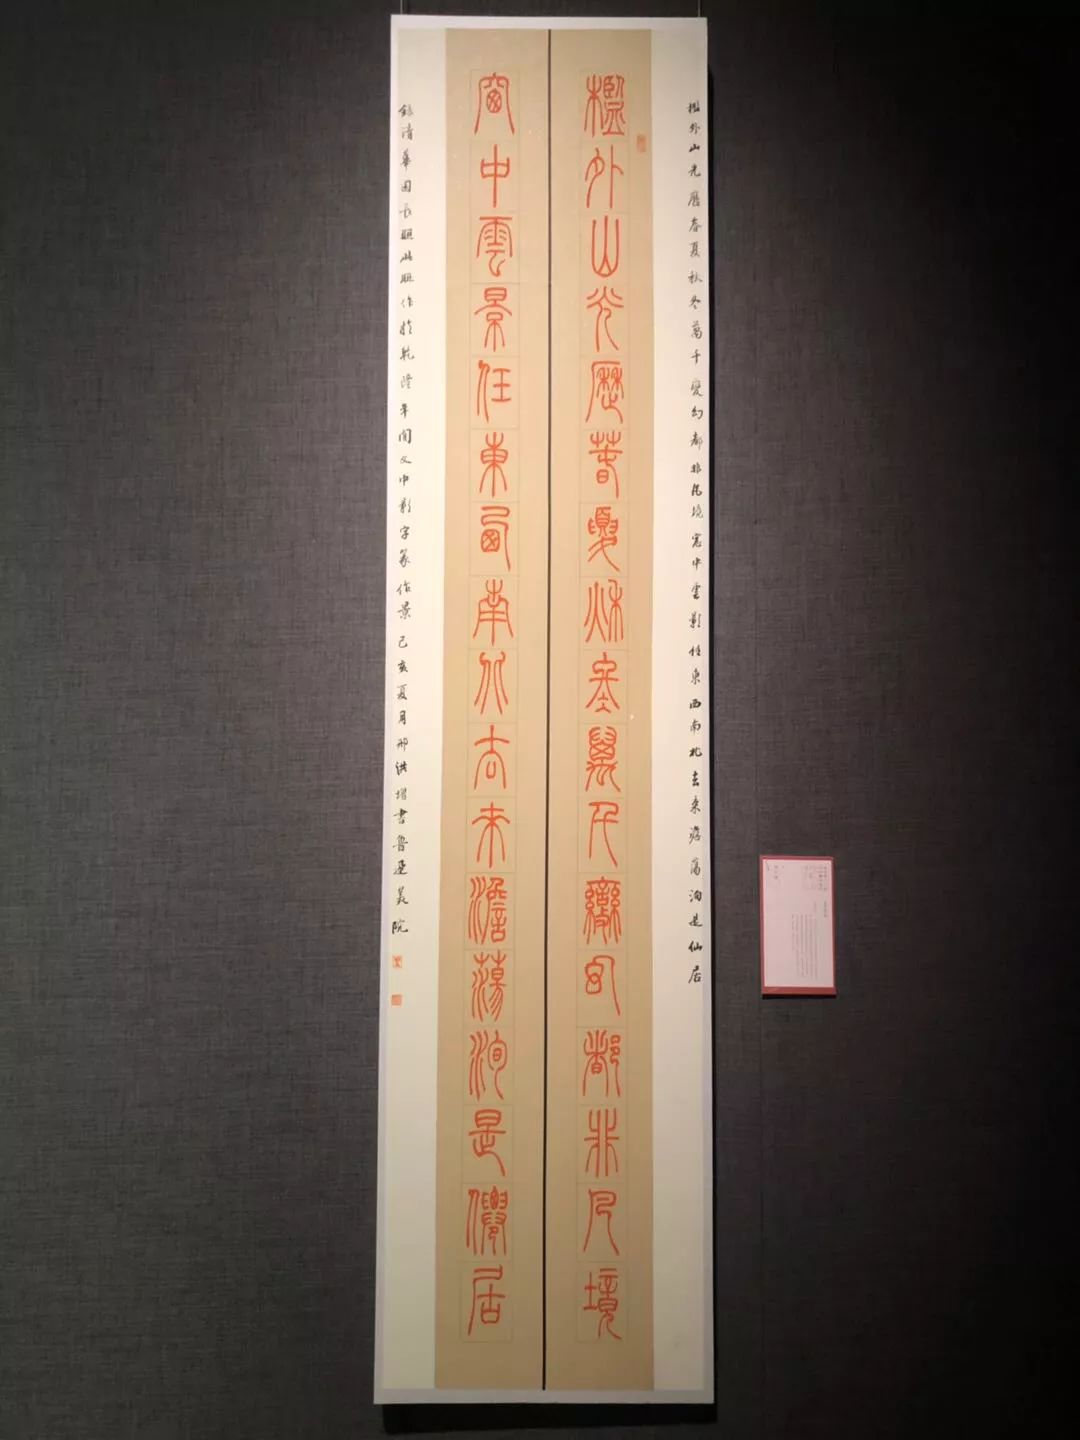 檻外山光歷春夏秋冬萬千變幻都非凡境窓中雲影任東西南北去來澹蕩洵是仙居
檻外山光歷春夏秋冬萬千變幻都非凡境
窗中雲景任東西南北去來澹蕩洵是僊居
錄清華園長聯此聯作於乾隆年間文中影字篆作景己亥夏月邢洪增書魯迅美院